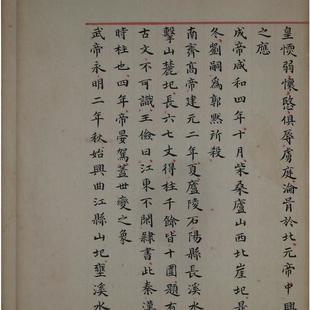 皇懷弱懷愍俱辱虜庭淪胥於北元帝中興
之應
成帝咸和四年十月柴桑廬山西北崖圮是
冬劉嗣為郭黙所殺
南齊高帝建元二年夏廬陵石陽縣長溪水
擊山麓圮長六七丈得柱千餘皆十圍題有
古文不可識王儉曰江東不閑隸書此秦漢
時柱也四年帝晏駕蓋世變之象
武帝永明二年秋始興曲江縣山圮壅溪水